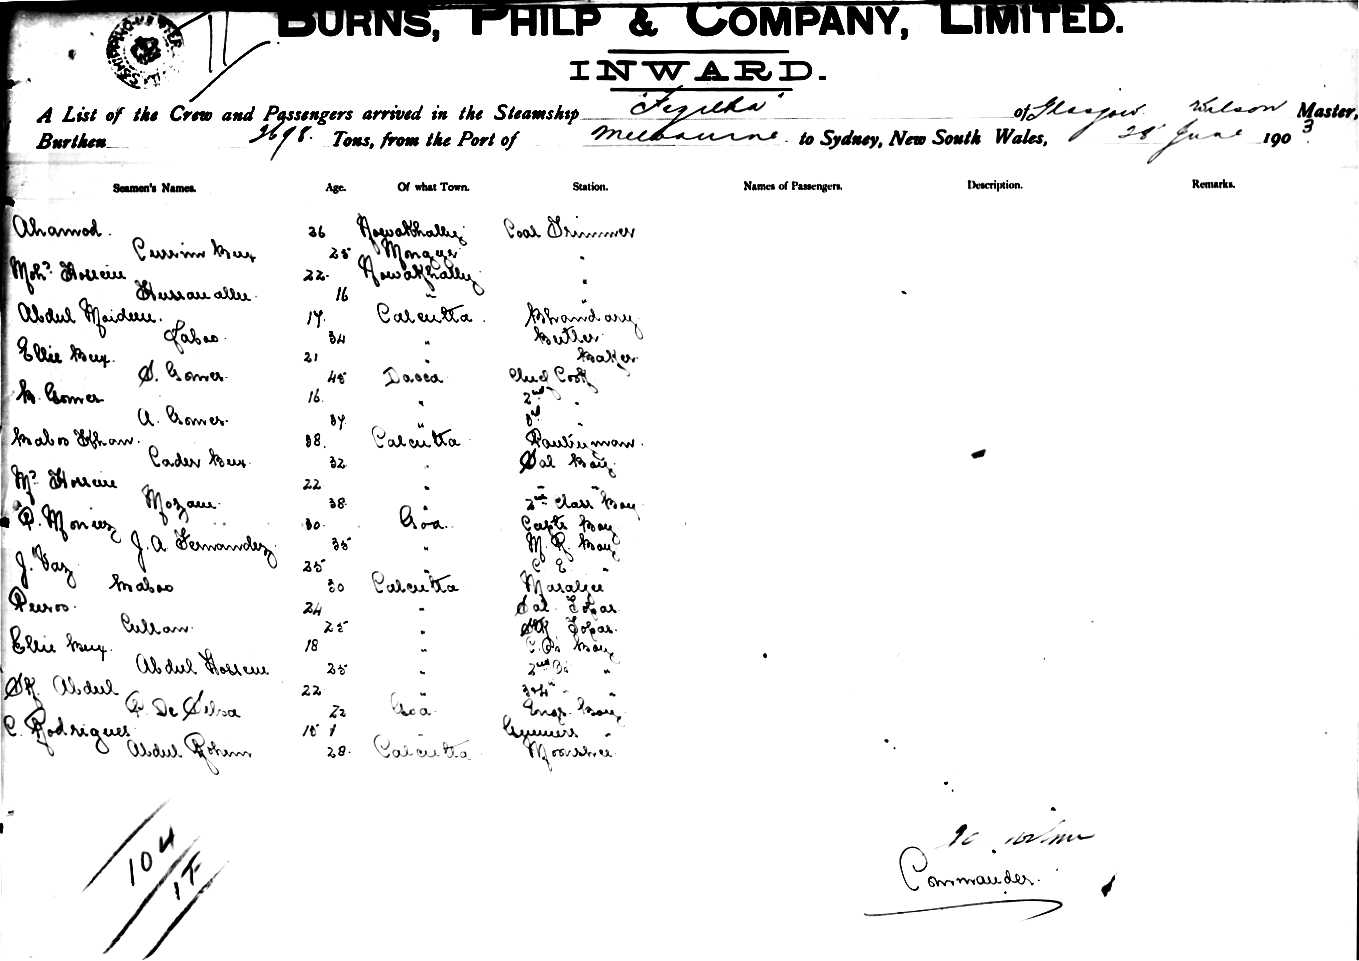 BURNS, PHILP & COMPANY, LIMITED.
INWARD.
A List of the Crew and Passengers arrived in the Steamship "Fazilka" of Glasgow Wilson Master,
Burthen 2698. Tons, from the Port of Melbourne to Sydney, New South Wales, 28 June 1903
Seamen's Names. Age. Of what Town. Station. Names of Passengers. Description. Remarks.
Ahamod. 36 Nowakhally Coal Trimmer
Currim Bux 25 Mongyr "
Moh? Hossein 22. Nowakhally "
Hussan allie. 16 " "
Abdul Maideen. 17. Calcutta. Bhandary
34 " Butler
Ellie Bux. 21 " Baker
S. Gomes 45 Dacca Chief Cook
B. Gomes 16. " 2nd "
A. Gomes. 37. " 3rd "
Baboo Khan. 38. Calcutta Pantryman.
Cader Bux. 32 " Sal Boy
M? Hossein 22 " " "
38. " 2nd Class Boy
P. Moniez 30. Goa. Capts Boy
J. A. Fernandez 35 " M. R. Boy
J. Vaz 25 " C. E. "
Baboo 30 Calcutta
24 " Sal. Topas
25 " Topas.
Ellie Bux. 18 " Boy
Abdul Hossein 25 " 2nd "
SK. Abdul 22 " "
P. De Silva 22 Goa Engr. Boy
C. Rodrigues 18 " Gunners "
Abdul Rohim 28. Calcutta Moonshee
104
1F
Wilson
Commander.